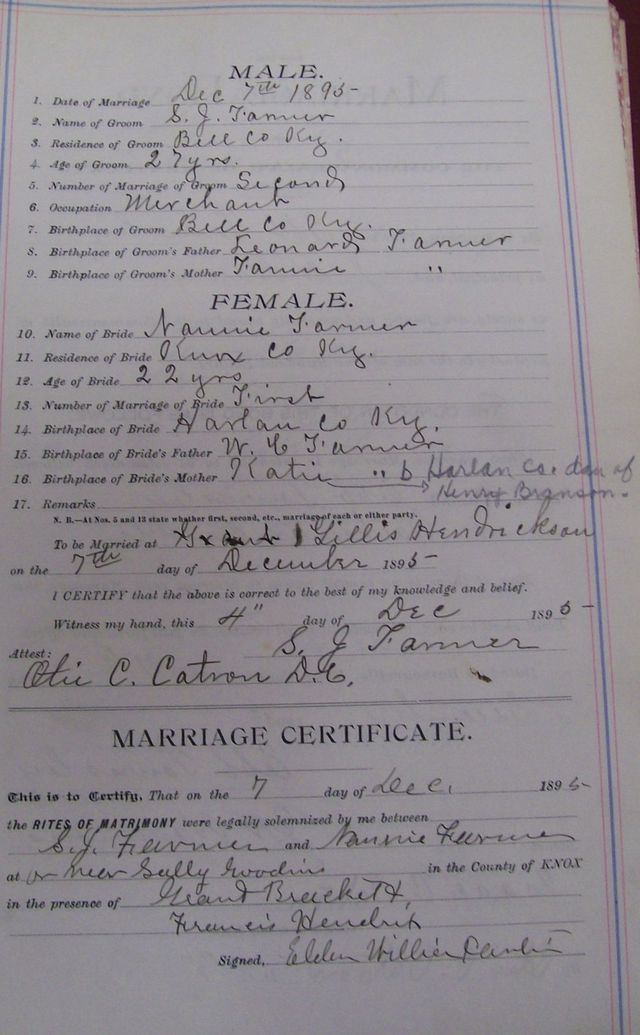 MALE.
1. Date of Marriage Dec 7th 1895
2. Name of Groom S. J. Farmer
3. Residence of Groom Bell Co Ky.
4. Age of Groom 27 yrs.
5. Number of Marriage of Groom Second
6. Occupation Merchant
7. Birthplace of Groom Bell Co Ky.
8. Birthplace of Groom's Father Leonard Farmer
9. Birthplace of Groom's Mother Fannie "
FEMALE.
10. Name of Bride Nannie Farmer
11. Residence of Bride Knox Co Ky.
12. Age of Bride 22 yrs
13. Number of Marriage of Bride First
14. Birthplace of Bride Harlan Co Ky.
15. Birthplace of Bride's Father W. C Farmer
16. Birthplace of Bride's Mother Katie " b Harlan Co. dau of
Henry Branson.
17. Remarks
N. B.—At Nos. 5 and 13 state whether first, second, etc., marriage of each or either party.
To be Married at Gillis Hendrickson
on the 7th day of December 1895
I CERTIFY that the above is correct to the best of my knowledge and belief.
Witness my hand, this 4" day of Dec 1895
S. J Farmer
Attest:
Otie C. Catron D.C.
MARRIAGE CERTIFICATE.
This is to Certify, That on the 7 day of Dec. 1895
the RITES OF MATRIMONY were legally solemnized by me between
S. J. Farmer and Nannie Farmer
at or near Sally Goodins in the County of KNOX
in the presence of Grant Brackett,
Francis Hendrik
Signed, Elder Willie